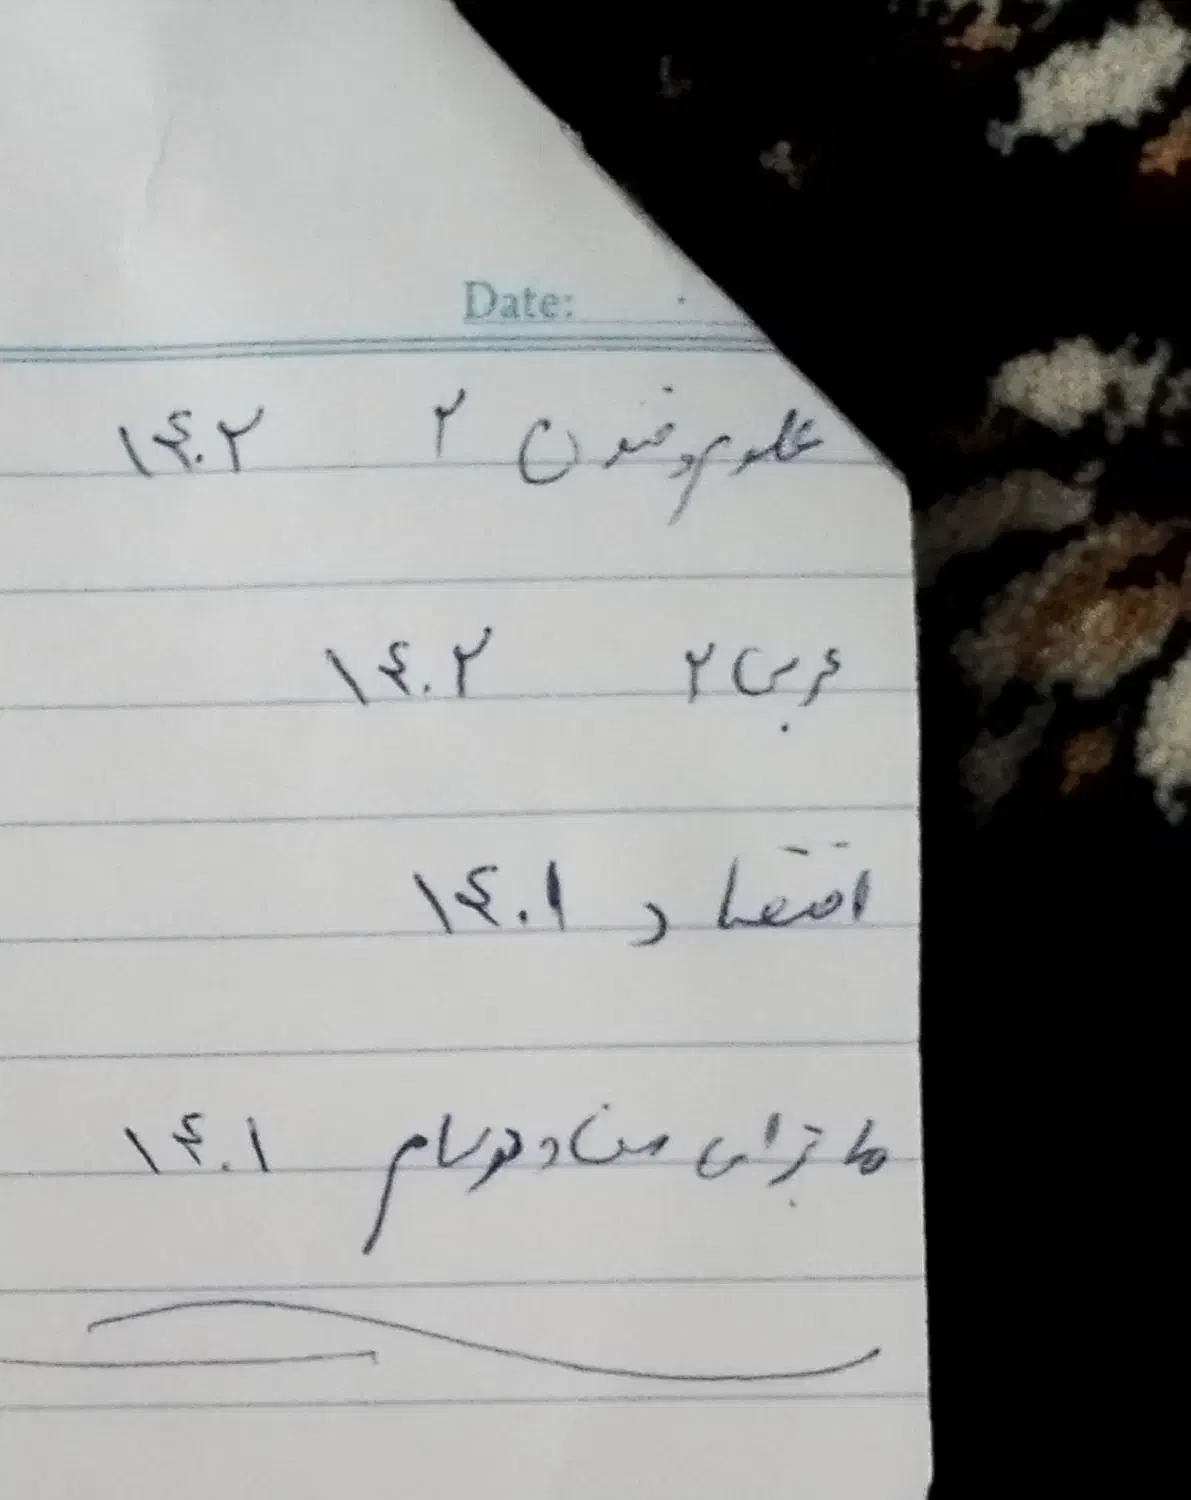 Date:
علوم و فنون ۲ ۱۴۰۲
عربی ۲ ۱۴۰۲
اقتصاد ۱۴۰۱
ماجرای من و درسام ۱۴۰۱